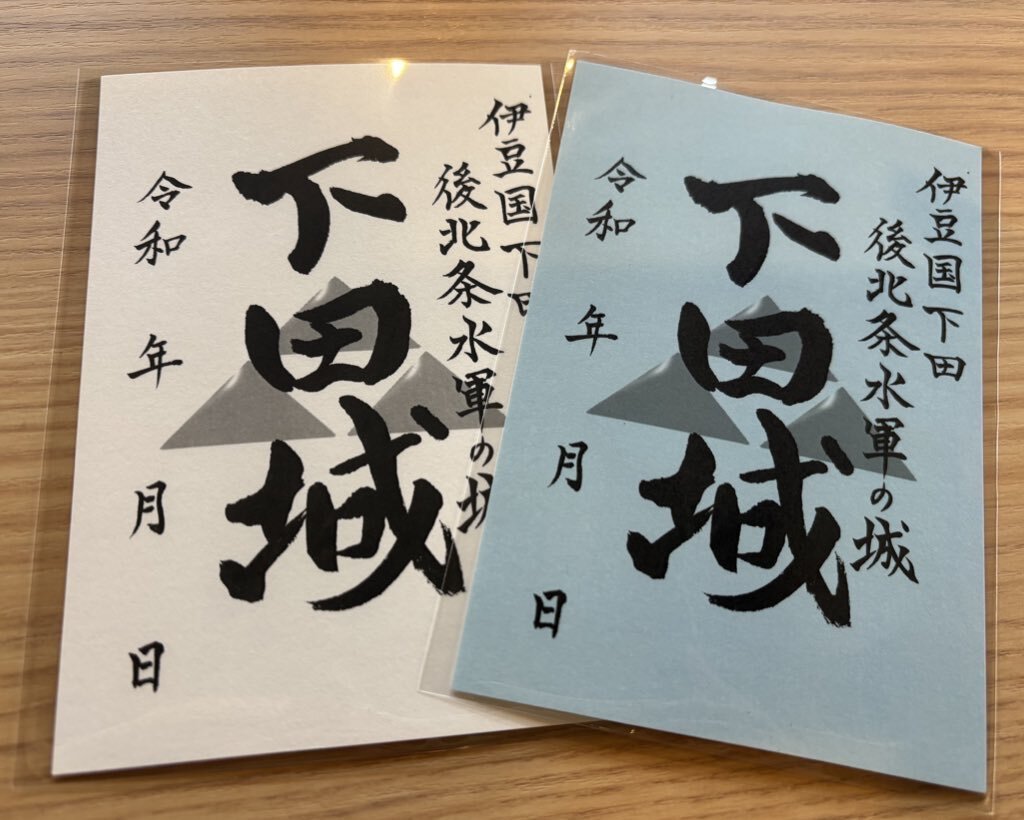 伊豆国下田
後北条水軍の城
下田城
令和 年 月 日
伊豆国下田
後北条水軍の城
下田城
令和 年 月 日